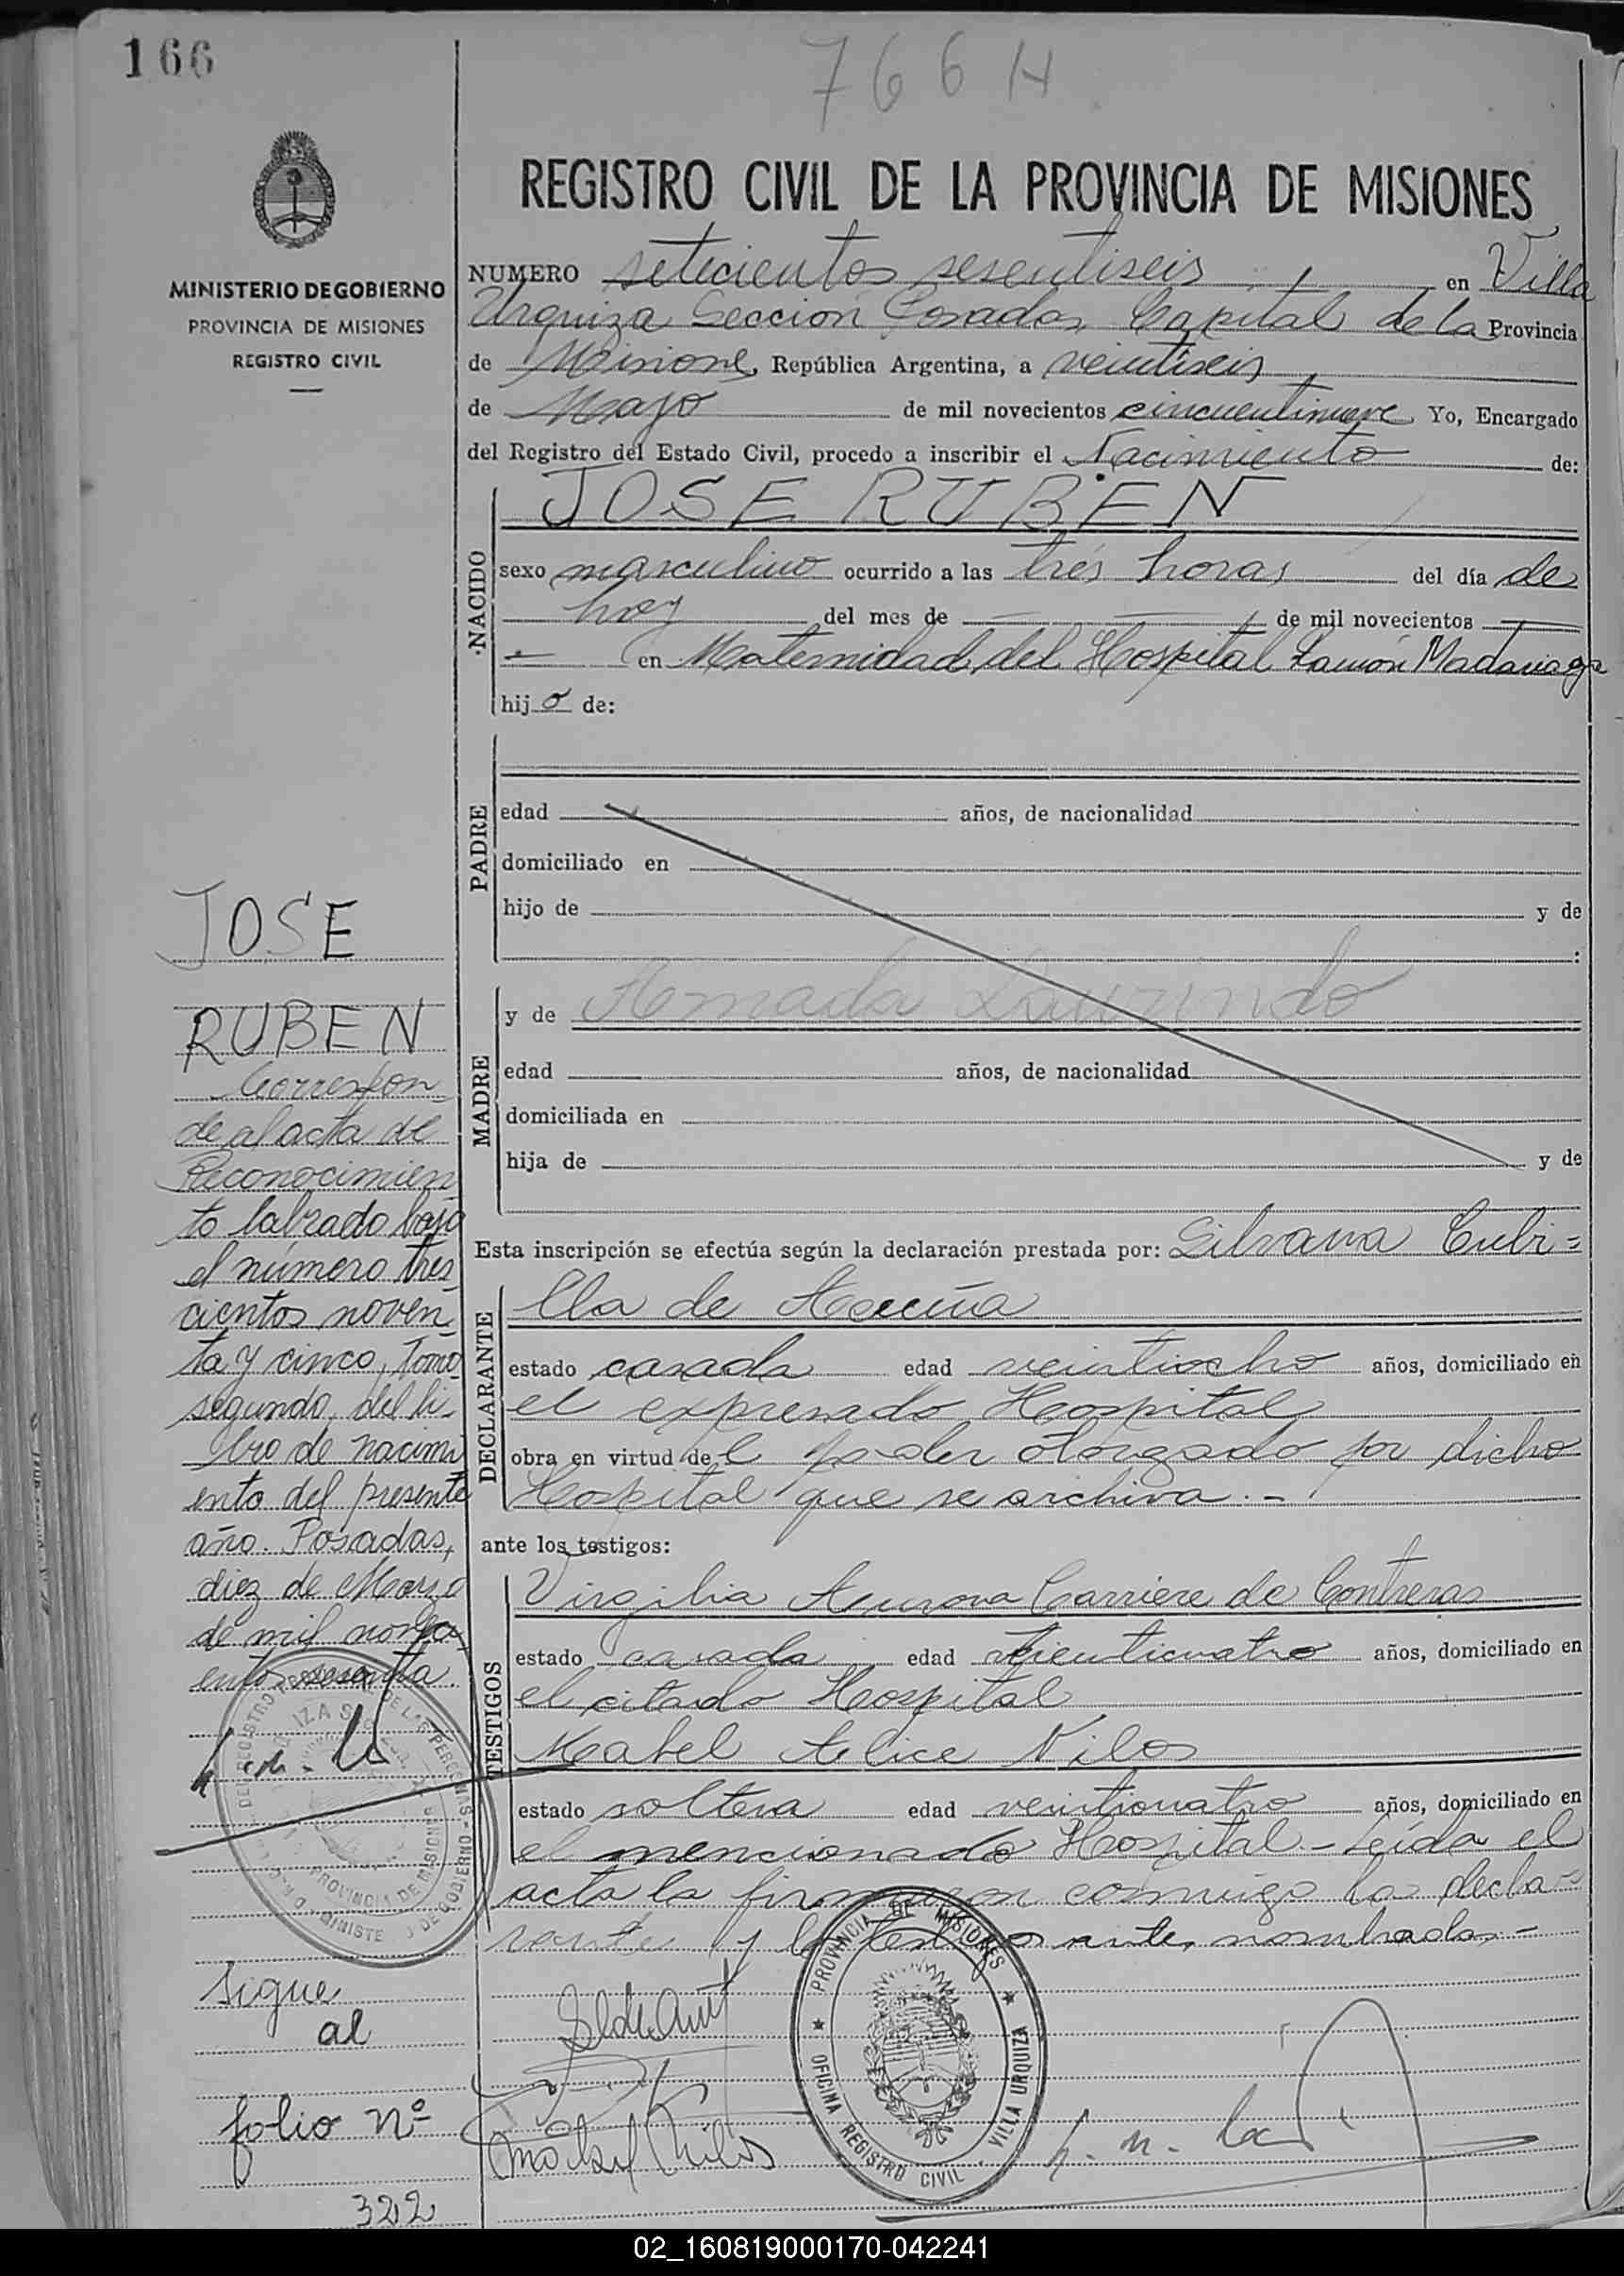 166
766 H
MINISTERIO DE GOBIERNO
PROVINCIA DE MISIONES
REGISTRO CIVIL
REGISTRO CIVIL DE LA PROVINCIA DE MISIONES
NUMERO setecientos sesentiseis en Villa
Urquiza Sección Posadas, Capital de la Provincia
de Misiones, República Argentina, a veintiseis
de Mayo de mil novecientos cincuentinueve Yo, Encargado
del Registro del Estado Civil, procedo a inscribir el Nacimiento de:
NACIDO
JOSE RUBEN
sexo masculino ocurrido a las tres horas del día de
hoy del mes de de mil novecientos
en Maternidad del Hospital Ramón Madariaga
hijo de:
PADRE
edad años, de nacionalidad
domiciliado en
hijo de y de
:
MADRE
y de Amada Laurindo
edad años, de nacionalidad
domiciliada en
hija de y de
Esta inscripción se efectúa según la declaración prestada por: Silvana Cubi=
DECLARANTE
lla de Acuña
estado casada edad veintiocho años, domiciliado en
el expresado Hospital
obra en virtud del poder otorgado por dicho
Hospital que se archiva.-
ante los testigos:
TESTIGOS
Virgilia Aurora Carriere de Contreras
estado casada edad veinticuatro años, domiciliado en
el citado Hospital
Mabel Alice Nilos
estado soltera edad veinticuatro años, domiciliado en
el mencionado Hospital.- Leída el
acta la firmaron conmigo la decla=
rante y los testigos antes nombrados.-
JOSE
RUBEN
Correspon
de al acta de
Reconocimien
to labrado bajo
el número tres
cientos noven
ta y cinco, Tomo
segundo, del li-
bro de nacimi
ento del presente
año. Posadas,
diez de Marzo
de mil noveci
entos sesenta.
sigue
al
folio Nº
322
PROVINCIA DE MISIONES
OFICINA REGISTRO CIVIL - VILLA URQUIZA
02_160819000170-042241